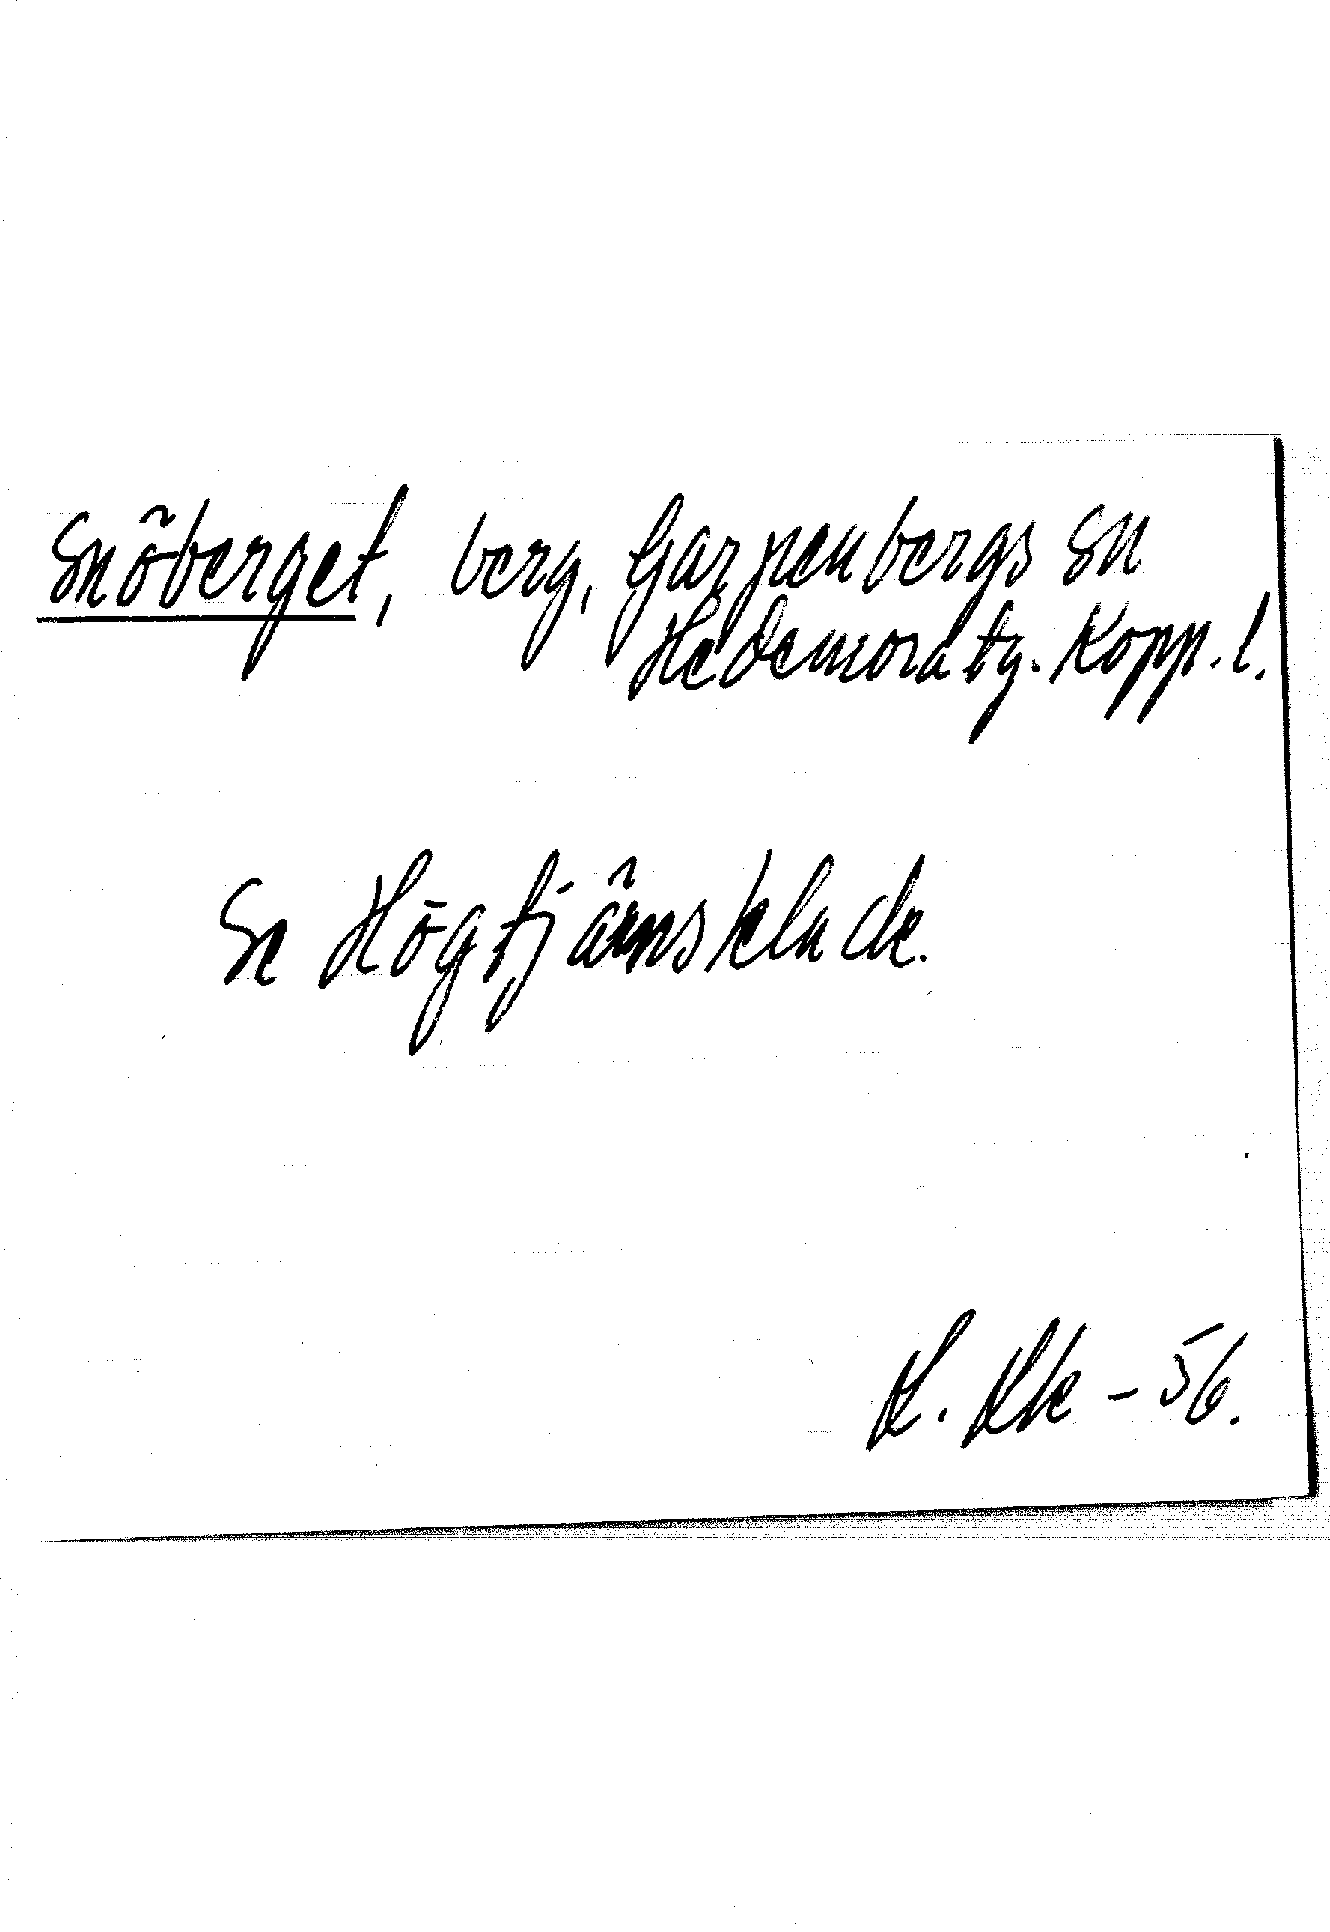 Snöberget, berg, Garpenbergs sn
Hedemora tg. Kopp. l.
Se Högtjärnsklack.
- 56.